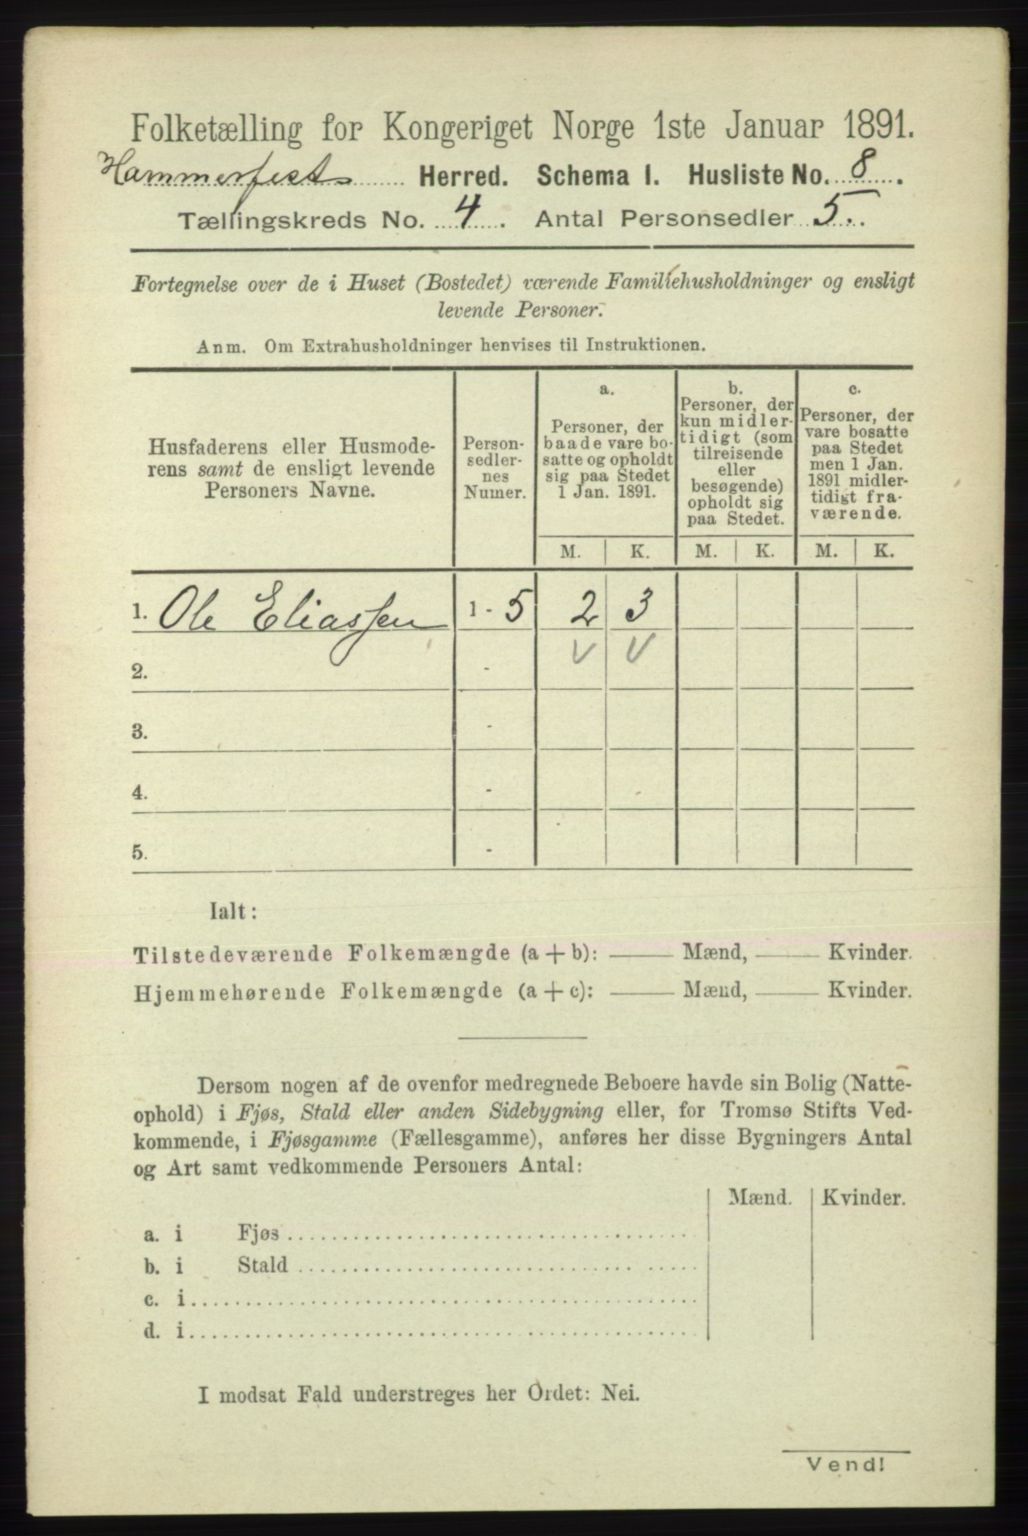 Folketælling for Kongeriget Norge 1ste Januar 1891.
Hammerfest Herred. Schema I. Husliste No. 8.
Tællingskreds No. 4. Antal Personsedler 5.
Fortegnelse over de i Huset (Bostedet) værende Familiehusholdninger og ensligt
levende Personer.
Anm. Om Extrahusholdninger henvises til Instruktionen.
Husfaderens eller Husmode-
rens samt de ensligt levende
Personers Navne.
Person-
sedler-
nes
Numer.
a.
Personer, der
baade vare bo-
satte og opholdt
sig paa Stedet
1 Jan. 1891.
b.
Personer, der
kun midler-
tidigt (som
tilreisende
eller
besøgende)
opholdt sig
paa Stedet.
c.
Personer, der
vare bosatte
paa Stedet
men 1 Jan.
1891 midler-
tidigt fra-
værende.
M. K. M. K. M. K.
1. Ole Eliassen 1 - 5 2 3
2. -
3. -
4. -
5. -
Ialt:
Tilstedeværende Folkemængde (a + b): Mænd, Kvinder.
Hjemmehørende Folkemængde (a + c): Mænd, Kvinder.
Dersom nogen af de ovenfor medregnede Beboere havde sin Bolig (Natte-
ophold) i Fjøs, Stald eller anden Sidebygning eller, for Tromsø Stifts Ved-
kommende, i Fjøsgamme (Fællesgamme), anføres her disse Bygningers Antal
og Art samt vedkommende Personers Antal:
Mænd. Kvinder.
a. i Fjøs
b. i Stald
c. i
d. i
I modsat Fald understreges her Ordet: Nei.
Vend!